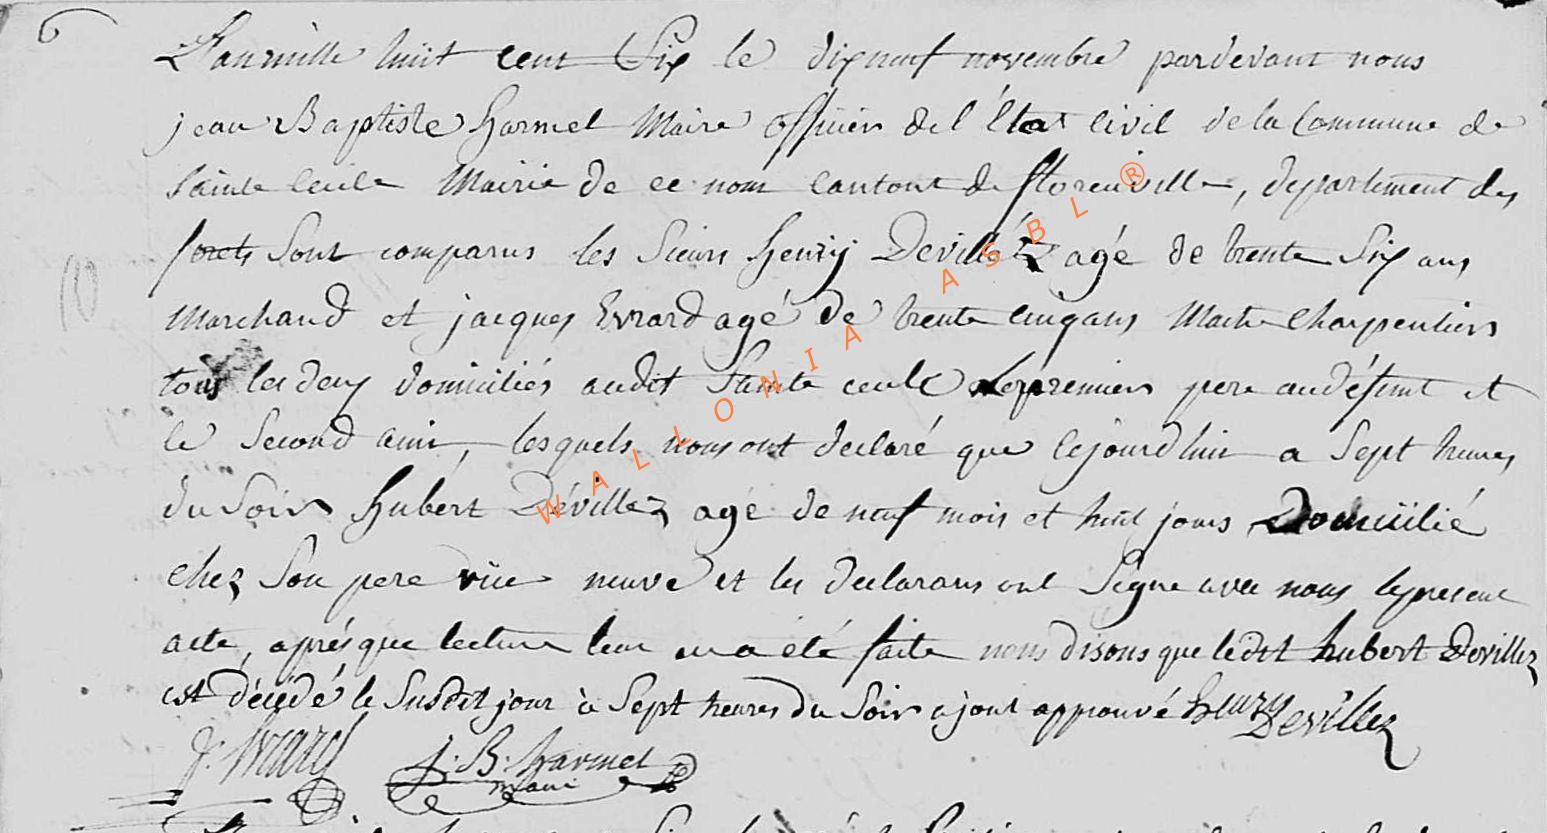 6
L'an mille huit cent Six le dix neuf novembre pardevant nous
jean Baptiste harmel Maire officier del'état Civil de la Commune de
Sainte Cecile Mairie de ce nom Cantont de florenville, département des
forets Sont comparus les Sieurs henry Devillez agé de trente Six ans
Marchand et jacques Evrard agé de trente cinq ans Maitre Charpentier
tous les deux domiciliés audit Sainte cecile Le premier pere au défunt et
le Second ami, lesquels nous ont declaré que cejourdhui a Sept heures
du Soir hubért Dévillez agé de neuf mois et huit jours Domicilié
chez Son pere rüe neuve et les declarans ont Signe avec nous le present
acte, aprés que lecture leur en a été faite nous disons que ledit hubert Devillez
est décédé le Susdit jour à Sept heures du Soir ajout approuvé henry Devillez
J. Evrard J. B. harmel
maire
10
WALLONIA ASBL ®